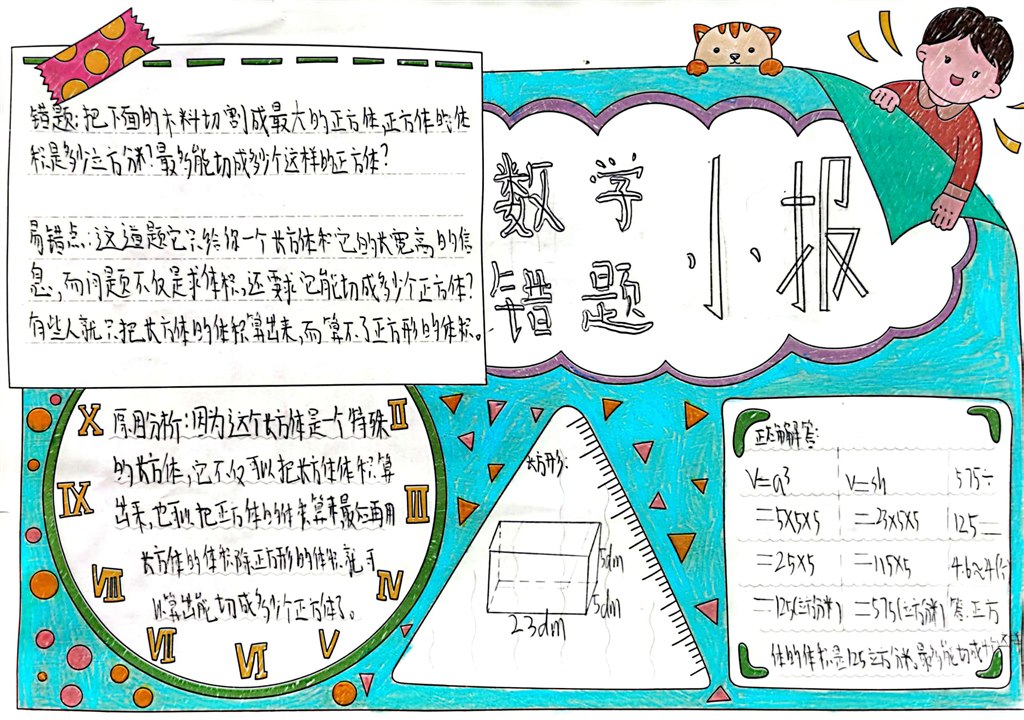 错题:把下面的木料切割成最大的正方体,正方体的体
积是多少立方分米?最多能切成多少个这样的正方体?
易错点:这道题它只给你一个长方体和它的长宽高的信
息,而问题不仅是求体积,还要求它能切成多少个正方体?
有些人就只把长方体的体积算出来,而算不了正方形的体积。
数学
错题
小报
原因分析:因为这个长方体是一个特殊
的长方体,它不仅可以把长方体体积算
出来,也可以把正方体的体积算出来最后再用
长方体的体积除正方形的体积就可
以算出能切成多少个正方体了。
X
II
IX
III
VIII
IV
VII
VI
V
长方形:
5dm
5dm
23dm
正确解答:
V=a³
=5×5×5
=25×5
=125(立方分米)
V=sh
=23×5×5
=115×5
=575(立方分米)
575÷
125=
4.6≈4(个)
答:正方
体的体积是125立方分米,最多能切成